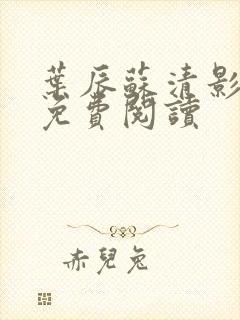 葉辰蘇清影
免費閱讀
赤兒兔